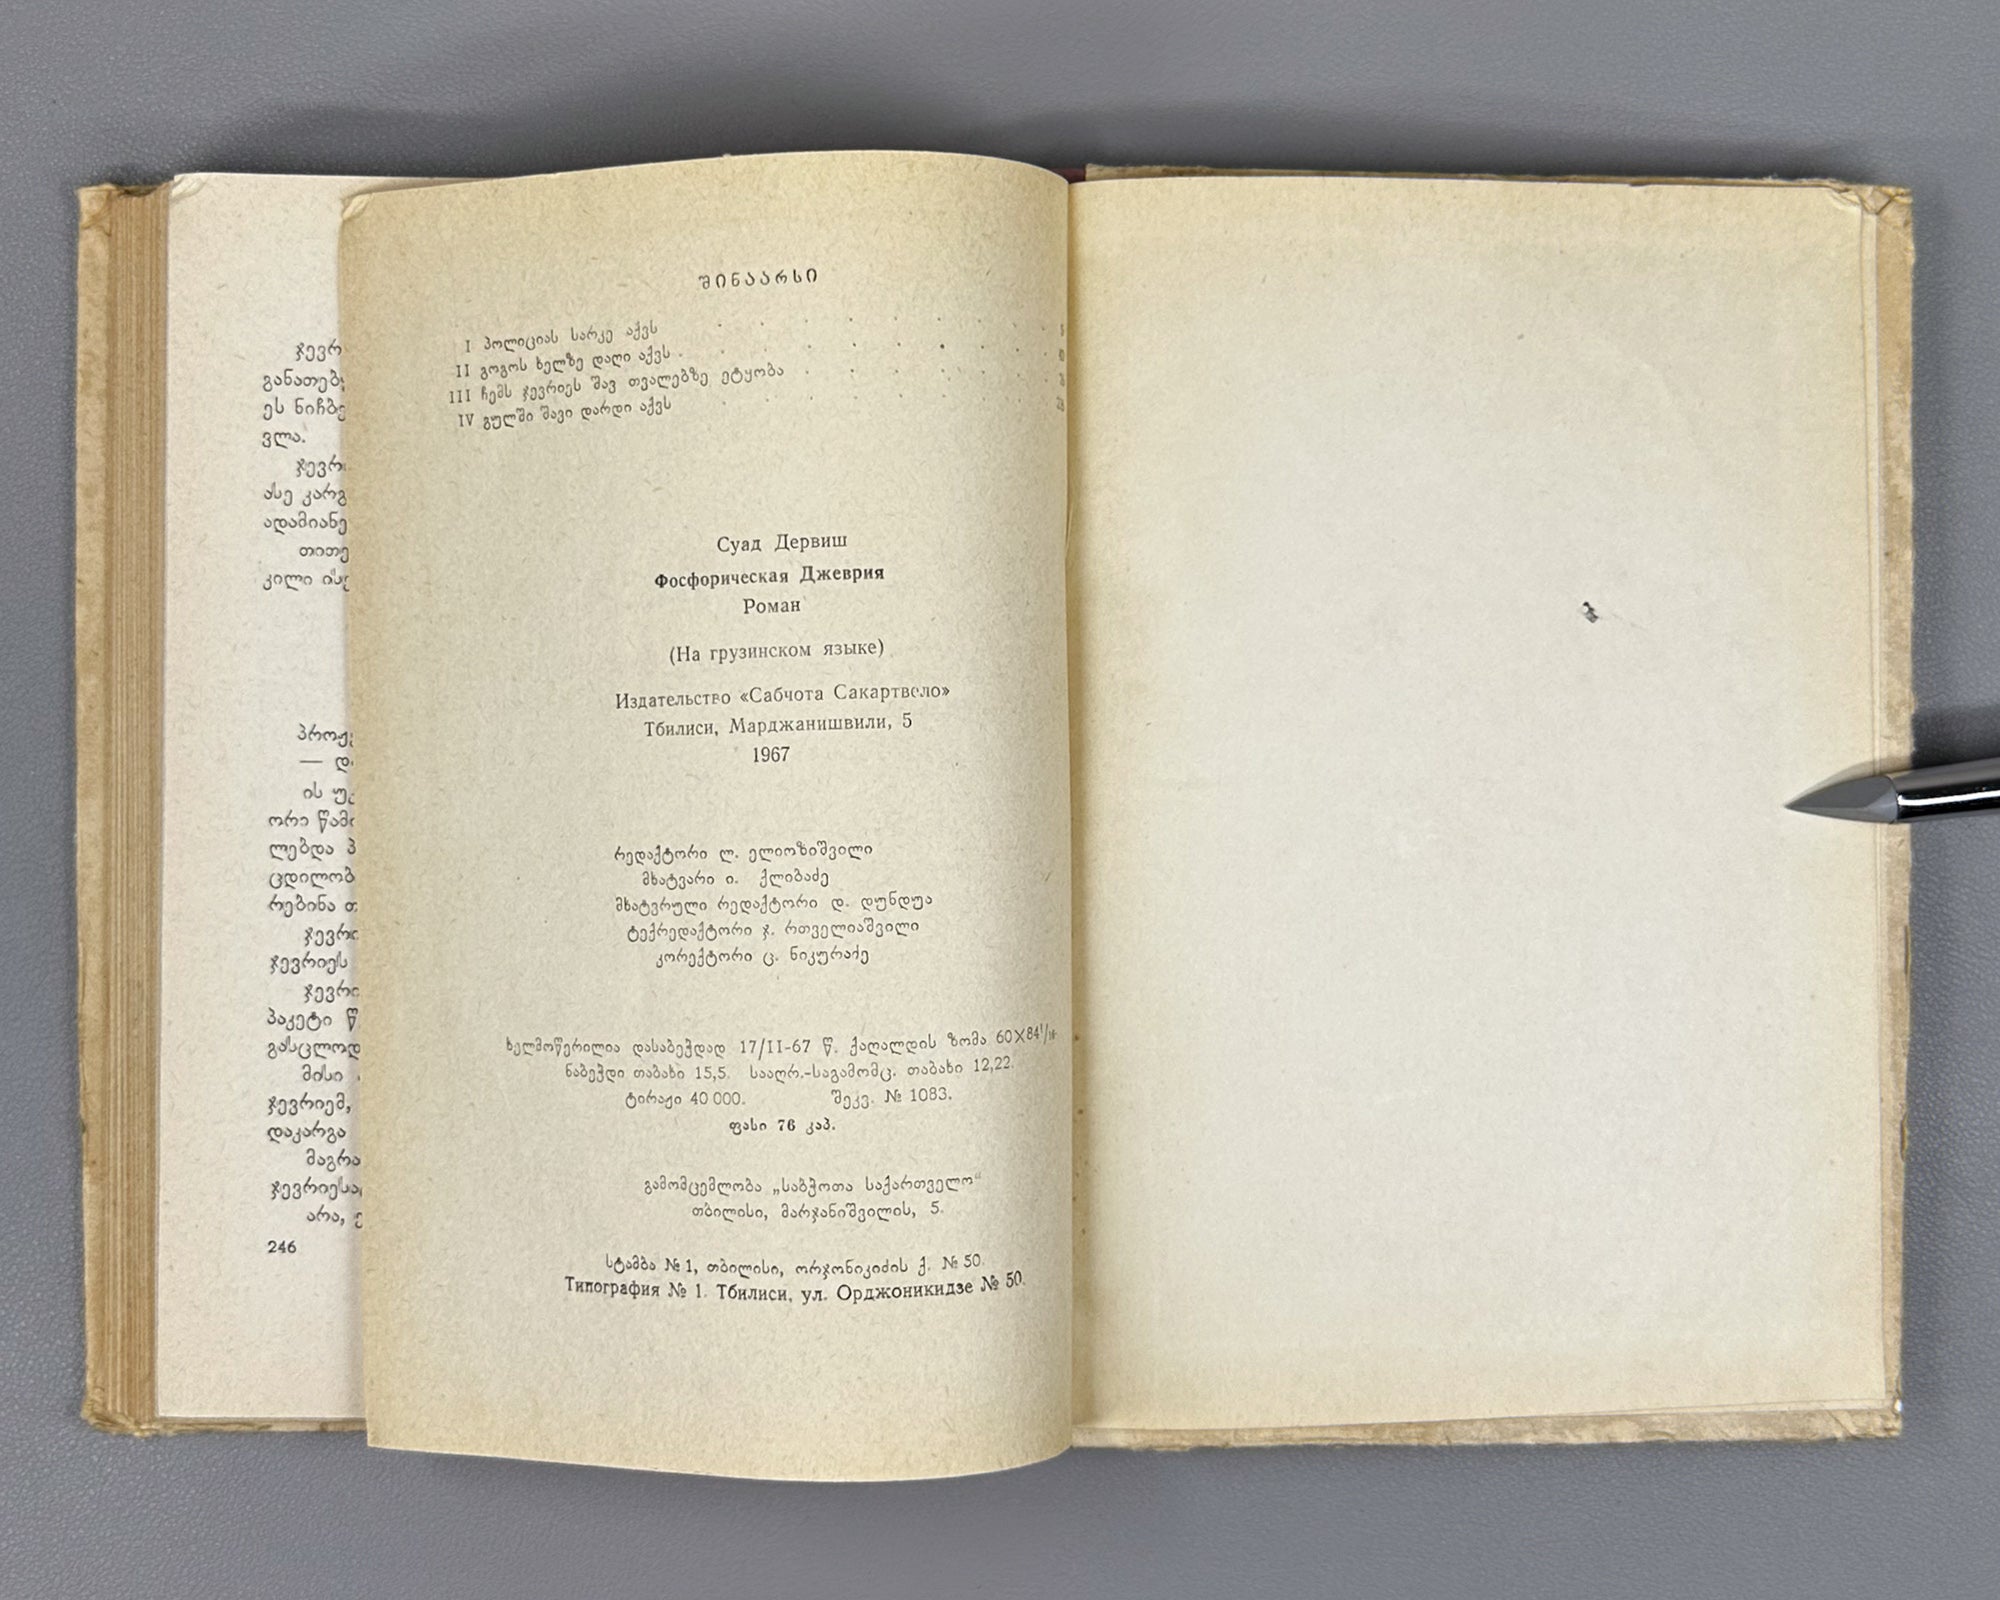 ჯევრ
განათებ
ეს ნიჩბე
ვლა.
ჯევრ
ასე კარგ
ადამიანე
თითე
კილი ისე
პროჟ
— დ
ის უკ
ორი წამ
ლებდა პ
ცდილობ
რებინა თ
ჯევრი
ჯევრიეს
ჯევრი
პაკეტი წ
გასცლოდ
მისი
ჯევრიემ,
დაკარგა
მაგრა
ჯევრიესა
არა,
246
შინაარსი
I პოლიციას სარკე აქვს
II გოგოს ხელზე დაღი აქვს
III ჩემს ჯევრიეს შავ თვალებზე ეტყობა
IV გულში შავი დარდი აქვს
Суад Дервиш
Фосфорическая Джеврия
Роман
(На грузинском языке)
Издательство «Сабчота Сакартвело»
Тбилиси, Марджанишвили, 5
1967
რედაქტორი ლ. ელიოზიშვილი
მხატვარი ი. ქლიბაძე
მხატვრული რედაქტორი დ. დუნდუა
ტექრედაქტორი ჯ. რთველიაშვილი
კორექტორი ც. ნიკურაძე
ხელმოწერილია დასაბეჭდად 17/II-67 წ. ქაღალდის ზომა 60X84¹/₁₆
ნაბეჭდი თაბახი 15,5. სააღრ.-საგამომც. თაბახი 12,22.
ტირაჟი 40 000. შეკვ. № 1083.
ფასი 76 კაპ.
გამომცემლობა „საბჭოთა საქართველო“
თბილისი, მარჯანიშვილის, 5.
სტამბა № 1, თბილისი, ორჯონიკიძის ქ. № 50.
Типография № 1. Тбилиси, ул. Орджоникидзе № 50.